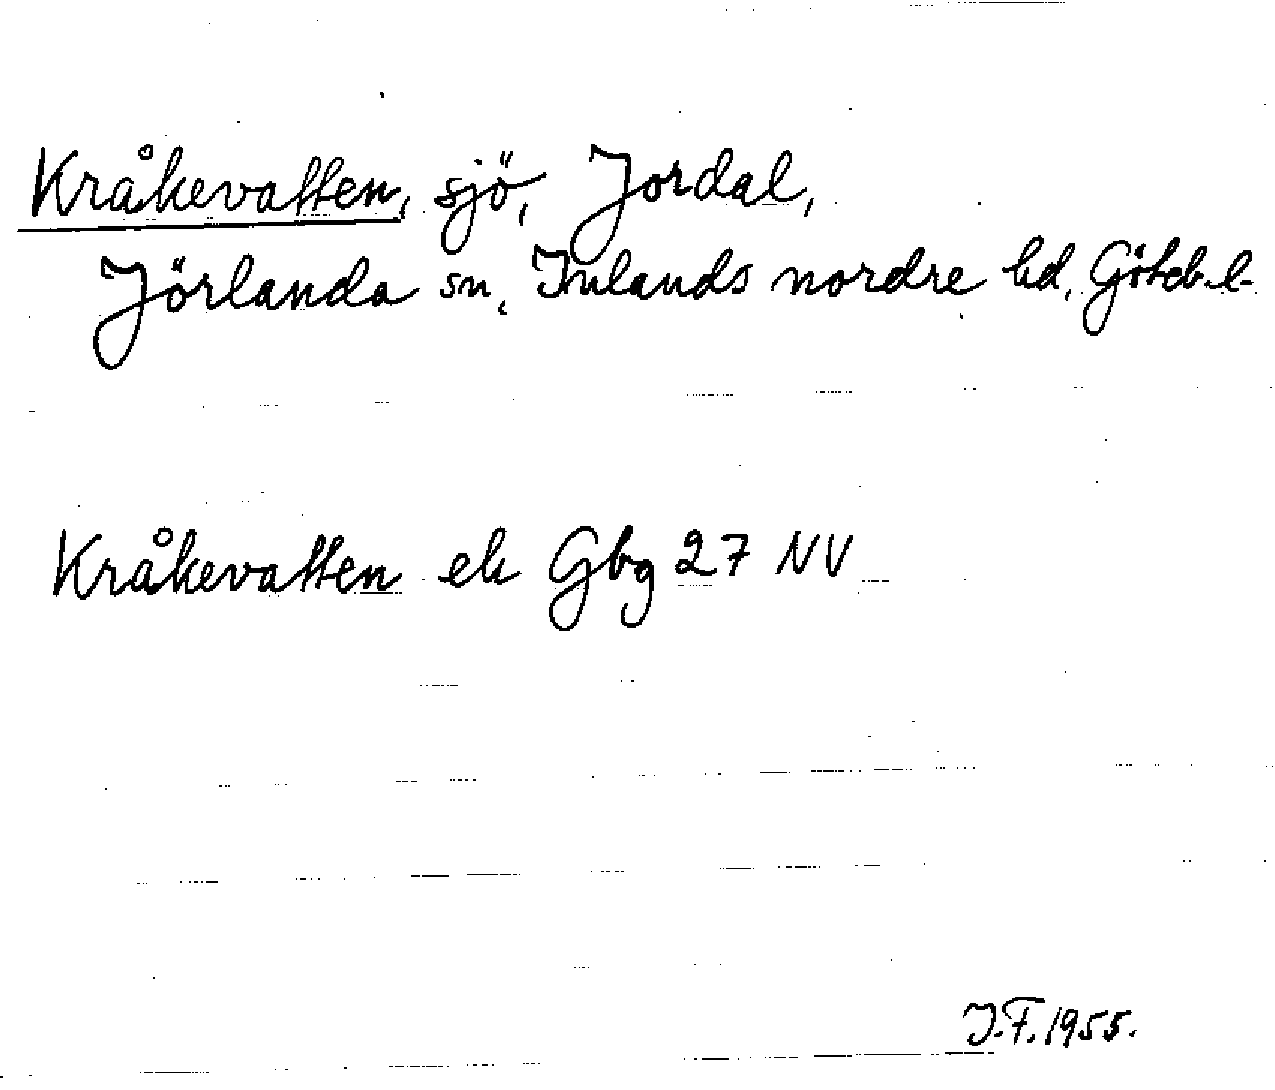 Kråkevatten, sjö, Jordal,
Jörlanda sn, Inlands nordre hd, Göteb. l.
Kråkevatten ek Gbg 27 NV
J.F. 1955.